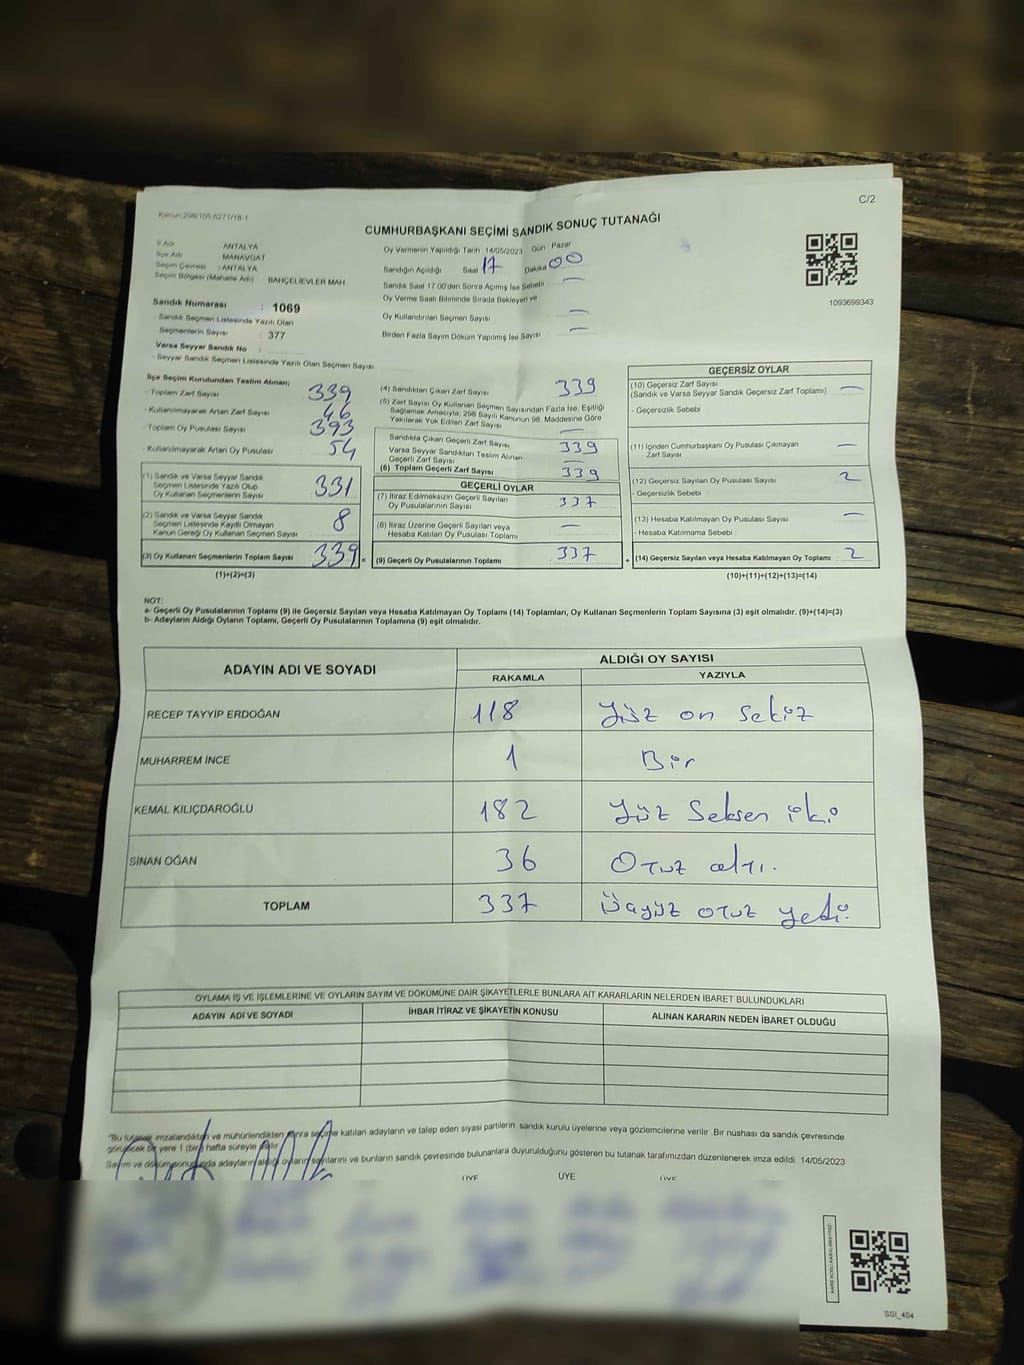 Kanun 298/105.6271/18-1
C/2
CUMHURBAŞKANI SEÇİMİ SANDIK SONUÇ TUTANAĞI
İl Adı : ANTALYA
İlçe Adı : MANAVGAT
Seçim Çevresi : ANTALYA
Seçim Bölgesi (Mahalle Adı) : BAHÇELİEVLER MAH.
Sandık Numarası : 1069
- Sandık Seçmen Listesinde Yazılı Olan
Seçmenlerin Sayısı : 377
Varsa Seyyar Sandık No :
- Seyyar Sandık Seçmen Listesinde Yazılı Olan Seçmen Sayısı
Oy Vermenin Yapıldığı Tarih 14/05/2023 Gün : Pazar
Sandığın Açıldığı Saat 17 Dakika 00
Sandık Saat 17.00'den Sonra Açılmış İse Sebebi —
Oy Verme Saati Bitiminde Sırada Bekleyen ve
Oy Kullandırılan Seçmen Sayısı —
Birden Fazla Sayım Döküm Yapılmış İse Sayısı —
1093699343
İlçe Seçim Kurulundan Teslim Alınan;
- Toplam Zarf Sayısı 339
- Kullanılmayarak Artan Zarf Sayısı 46
- Toplam Oy Pusulası Sayısı 393
- Kullanılmayarak Artan Oy Pusulası 54
(1) Sandık ve Varsa Seyyar Sandık
Seçmen Listesinde Yazılı Olup
Oy Kullanan Seçmenlerin Sayısı 331
(2) Sandık ve Varsa Seyyar Sandık
Seçmen Listesinde Kayıtlı Olmayan
Kanun Gereği Oy Kullanan Seçmen Sayısı 8
(3) Oy Kullanan Seçmenlerin Toplam Sayısı 339 =
(1)+(2)=(3)
(4) Sandıktan Çıkan Zarf Sayısı 339
(5) Zarf Sayısı Oy Kullanan Seçmen Sayısından Fazla İse, Eşitliği
Sağlamak Amacıyla, 298 Sayılı Kanunun 98. Maddesine Göre
Yakılarak Yok Edilen Zarf Sayısı —
Sandıkta Çıkan Geçerli Zarf Sayısı 339
Varsa Seyyar Sandıktan Teslim Alınan
Geçerli Zarf Sayısı —
(6) Toplam Geçerli Zarf Sayısı 339
GEÇERLİ OYLAR
(7) İtiraz Edilmeksizin Geçerli Sayılan
Oy Pusulalarının Sayısı 337
(8) İtiraz Üzerine Geçerli Sayılan veya
Hesaba Katılan Oy Pusulası Toplamı —
(9) Geçerli Oy Pusulalarının Toplamı 337 +
GEÇERSİZ OYLAR
(10) Geçersiz Zarf Sayısı
(Sandık ve Varsa Seyyar Sandık Geçersiz Zarf Toplamı) —
- Geçersizlik Sebebi :
(11) İçinden Cumhurbaşkanı Oy Pusulası Çıkmayan
Zarf Sayısı —
(12) Geçersiz Sayılan Oy Pusulası Sayısı 2
- Geçersizlik Sebebi :
(13) Hesaba Katılmayan Oy Pusulası Sayısı —
- Hesaba Katılmama Sebebi :
(14) Geçersiz Sayılan veya Hesaba Katılmayan Oy Toplamı 2
(10)+(11)+(12)+(13)=(14)
NOT:
a- Geçerli Oy Pusulalarının Toplamı (9) ile Geçersiz Sayılan veya Hesaba Katılmayan Oy Toplamı (14) Toplamları, Oy Kullanan Seçmenlerin Toplam Sayısına (3) eşit olmalıdır. (9)+(14)=(3)
b- Adayların Aldığı Oyların Toplamı, Geçerli Oy Pusulalarının Toplamına (9) eşit olmalıdır.
ADAYIN ADI VE SOYADI ALDIĞI OY SAYISI
RAKAMLA YAZIYLA
RECEP TAYYİP ERDOĞAN 118 Yüz on sekiz
MUHARREM İNCE 1 Bir
KEMAL KILIÇDAROĞLU 182 Yüz Seksen iki
SİNAN OĞAN 36 Otuz altı.
TOPLAM 337 Üçyüz otuz yedi
OYLAMA İŞ VE İŞLEMLERİNE VE OYLARIN SAYIM VE DÖKÜMÜNE DAİR ŞİKAYETLERLE BUNLARA AİT KARARLARIN NELERDEN İBARET BULUNDUKLARI
ADAYIN ADI VE SOYADI İHBAR İTİRAZ VE ŞİKAYETİN KONUSU ALINAN KARARIN NEDEN İBARET OLDUĞU
"Bu tutanak imzalandıktan ve mühürlendikten sonra seçime katılan adayların ve talep eden siyasi partilerin sandık kurulu üyelerine veya gözlemcilerine verilir. Bir nüshası da sandık çevresinde
görülecek bir yere 1 (bir) hafta süreyle asılır."
Sayım ve döküm sonucunda adayların aldığı oyların sayılarını ve bunların sandık çevresinde bulunanlara duyurulduğunu gösteren bu tutanak tarafımızdan düzenlenerek imza edildi. 14/05/2023
ÜYE ÜYE ÜYE
SSI_404